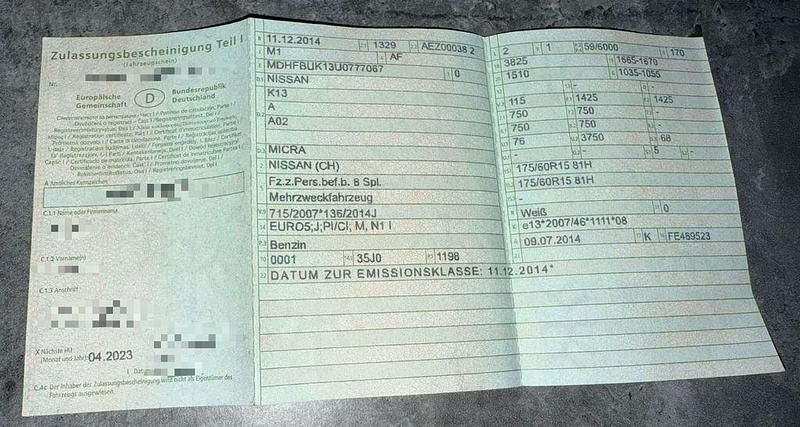 Zulassungsbescheinigung Teil I
(Fahrzeugschein)
Nr.
Europäische Gemeinschaft
D
Bundesrepublik Deutschland
A Amtliches Kennzeichen
C.1.1 Name oder Firmenname
C.1.2 Vorname(n)
C.1.3 Anschrift
X Nächste HU
(Monat und Jahr) 04.2023
C.4c Der Inhaber der Zulassungsbescheinigung wird nicht als Eigentümer des
Fahrzeugs ausgewiesen.
11.12.2014 1329 AEZ00038 2
M1 AF
MDHFBUK13U0777067 0
NISSAN
K13
A
A02
MICRA
NISSAN (CH)
Fz.z.Pers.bef.b. 8 Spl.
Mehrzweckfahrzeug
715/2007*136/2014J
EURO5;J;PI/CI, M, N1 I
Benzin
0001 35J0 1198
DATUM ZUR EMISSIONSKLASSE: 11.12.2014*
2 1 59/6000 170
3825 1665-1670
1510 1035-1055
- -
115 1425 1425
750 750 -
750 750 -
76 3750 68
- - 5 -
175/60R15 81H
175/60R15 81H
-
Weiß 0
e13*2007/46*1111*08
09.07.2014 K FE469523